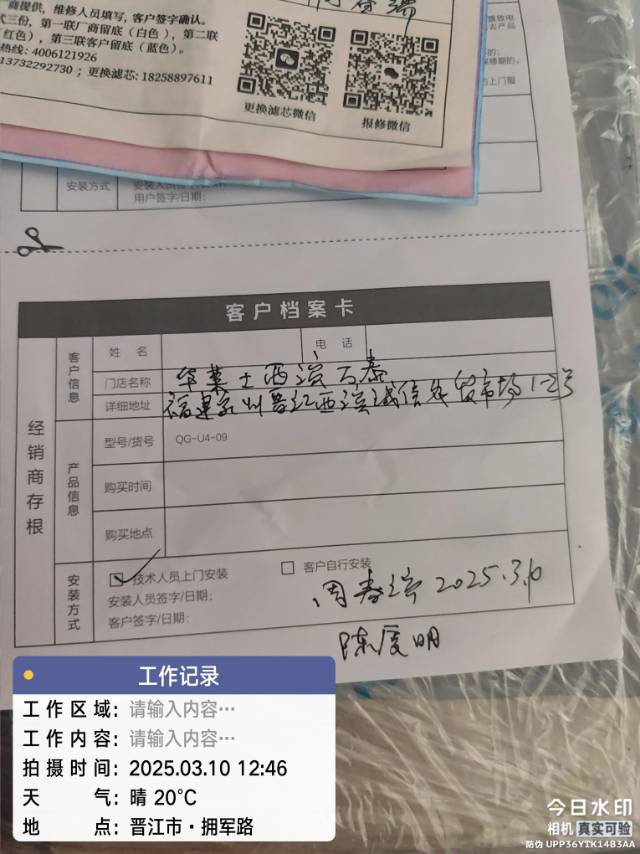 厂商提供，维修人员填写，客户签字确认。
式三份，第一联厂商留底（白色），第二联
红色），第三联客户留底（蓝色）。
热线: 4006121926
13732292730；更换滤芯: 18258897611
更换滤芯微信
报修微信
安装方式
用户签字/日期:
客户档案卡
经销商存根
客户信息
姓 名
电 话
门店名称 华莱士西滨万泰
详细地址 福建泉州晋江西滨诚信外贸市场1-2号
产品信息
型号/货号 QG-U4-09
购买时间
购买地点
安装方式
技术人员上门安装
客户自行安装
安装人员签字/日期: 周春 2025.3.10
客户签字/日期:
陈 明
工作记录
工作区域: 请输入内容…
工作内容: 请输入内容…
拍摄时间: 2025.03.10 12:46
天 气: 晴 20℃
地 点: 晋江市·拥军路
今日水印
相机 真实可验
防伪 UPP36YTK14B3AA